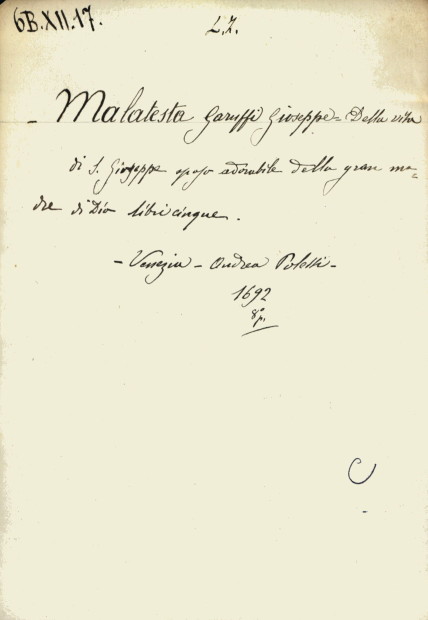 6B.XII.17.
L.Z.
- Malatesta Garuffi Gioseppe = Della vita
di S. Gioseppe sposo adorabile della gran ma-
dre di Dio libri cinque.
- Venezia - Andrea Poletti -
1692
8°
C